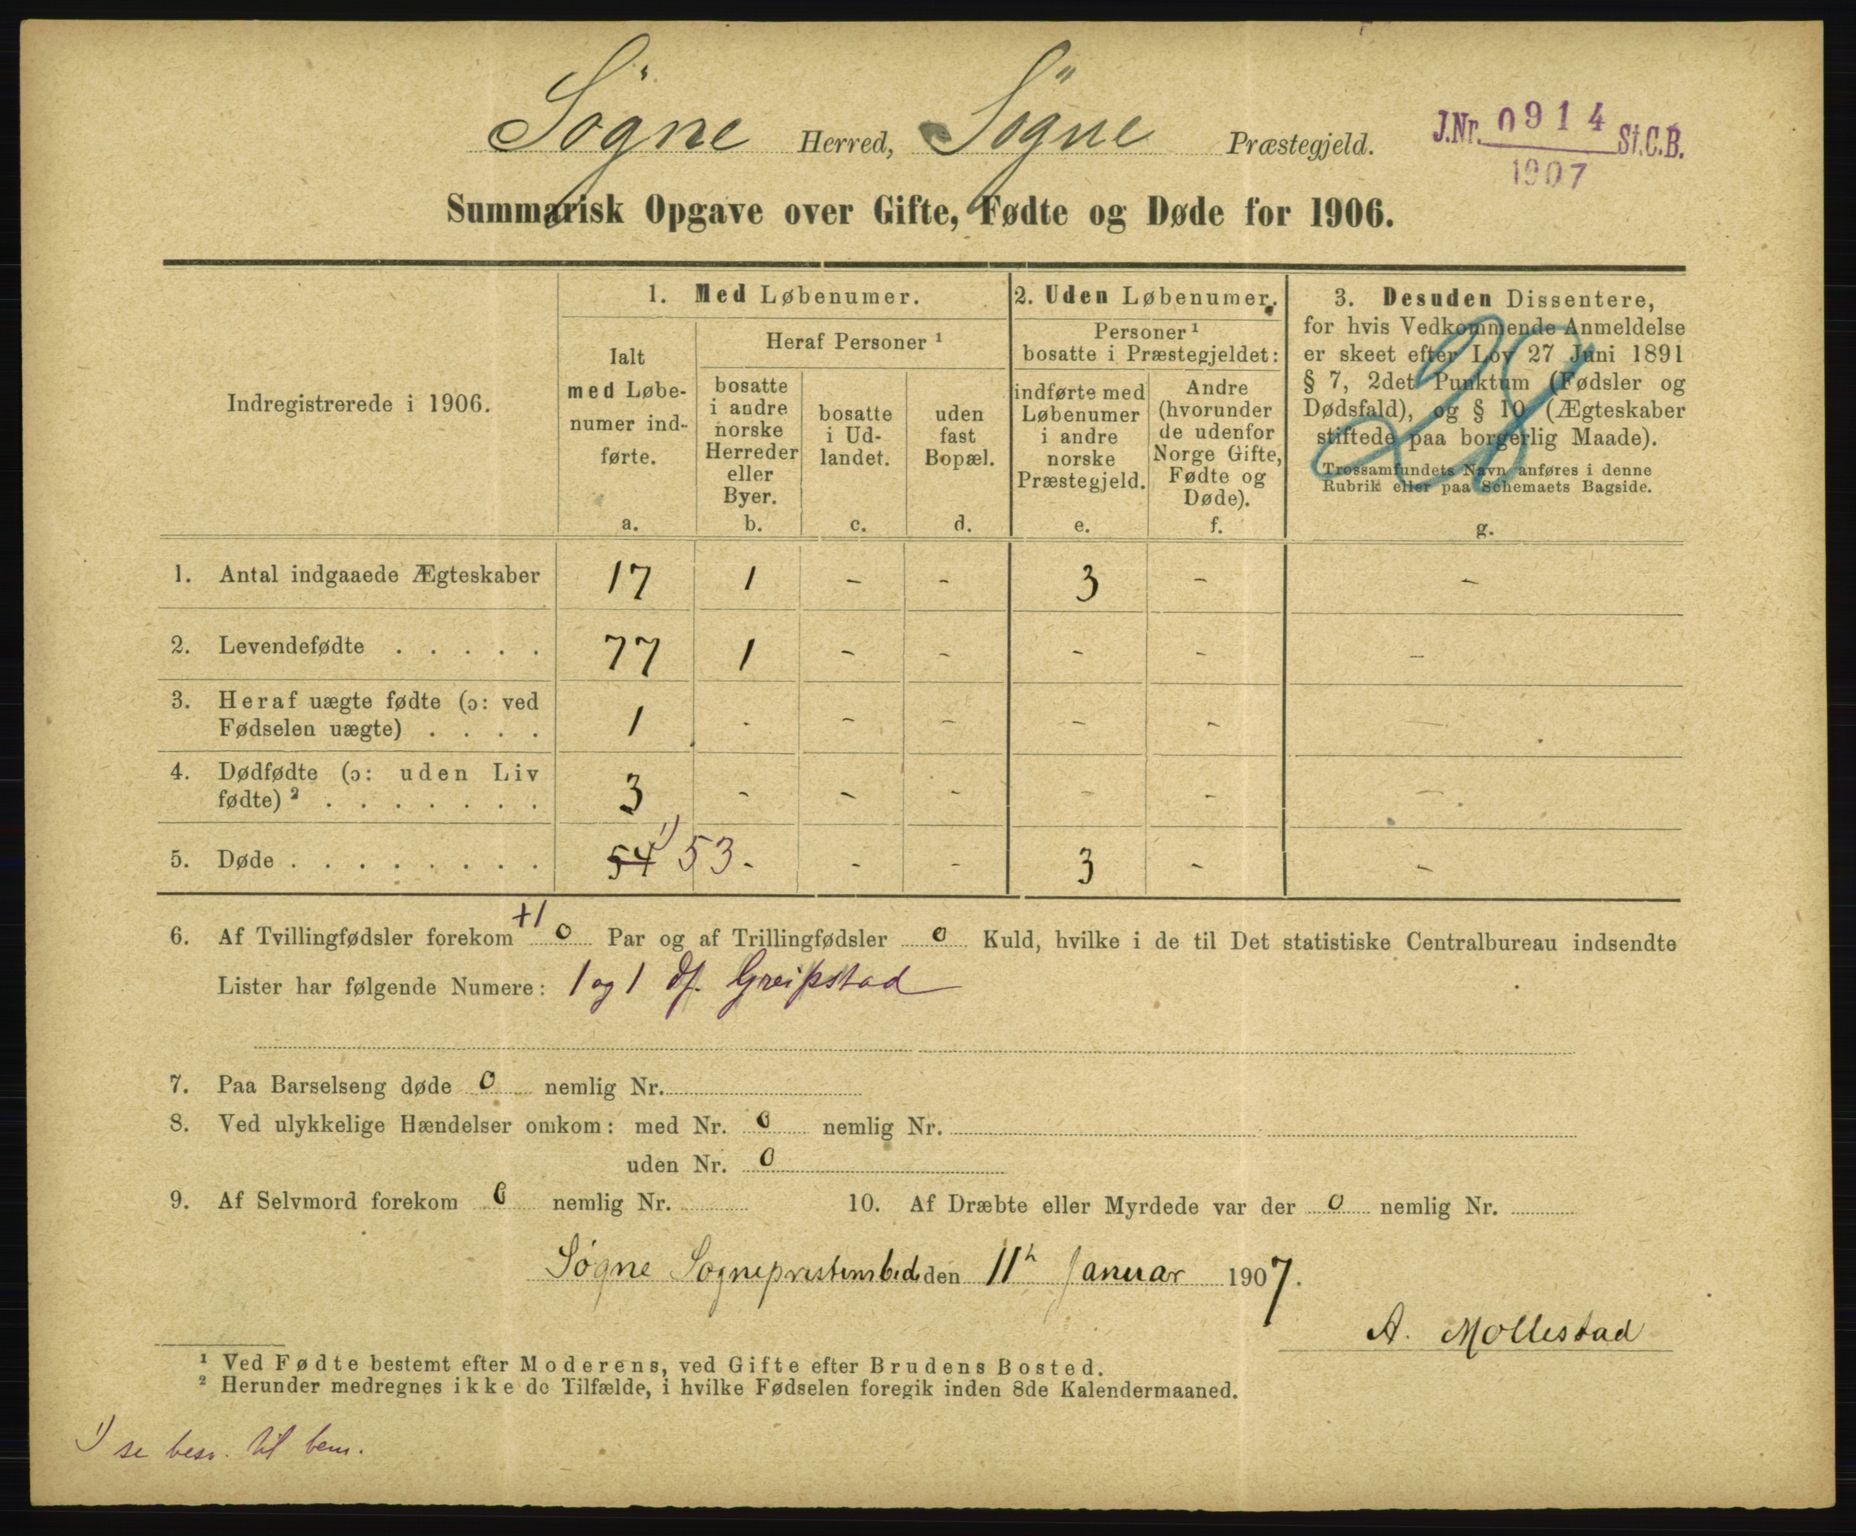 Søgne Herred, Søgne Præstegjeld.
J.Nr. 0914 St.C.B.
1907
Summarisk Opgave over Gifte, Fødte og Døde for 1906.
Indregistrerede i 1906.
1. Med Løbenumer.
Ialt
med Løbe-
numer ind-
førte.
a.
Heraf Personer ¹
bosatte
i andre
norske
Herreder
eller
Byer.
b.
bosatte
i Ud-
landet.
c.
uden
fast
Bopæl.
d.
2. Uden Løbenumer.
Personer ¹
bosatte i Præstegjeldet:
indførte med
Løbenumer
i andre
norske
Præstegjeld.
e.
Andre
(hvorunder
de udenfor
Norge Gifte,
Fødte og
Døde).
f.
3. Desuden Dissentere,
for hvis Vedkommende Anmeldelse
er skeet efter Lov 27 Juni 1891
§ 7, 2det Punktum (Fødsler og
Dødsfald), og § 10 (Ægteskaber
stiftede paa borgerlig Maade).
Trossamfundets Navn anføres i denne
Rubrik eller paa Schemaets Bagside.
g.
1. Antal indgaaede Ægteskaber 17 1 - - 3 - -
2. Levendefødte . . . . . 77 1 - - - - -
3. Heraf uægte fødte (ɔ: ved
Fødselen uægte) . . . . 1 - - - - - -
4. Dødfødte (ɔ: uden Liv
fødte) ² . . . . . . . 3 - - - - - -
5. Døde . . . . . . . . 54 ¹) 53 - - - 3 - -
6. Af Tvillingfødsler forekom +1 0 Par og af Trillingfødsler 0 Kuld, hvilke i de til Det statistiske Centralbureau indsendte
Lister har følgende Numere: 1 og 1 df. Greipstad
7. Paa Barselseng døde 0 nemlig Nr.
8. Ved ulykkelige Hændelser omkom: med Nr. 0 nemlig Nr.
uden Nr. 0
9. Af Selvmord forekom 0 nemlig Nr. 10. Af Dræbte eller Myrdede var der 0 nemlig Nr.
Søgne Sogneprestembede den 11ᵗᵉ Januar 1907.
A. Mollestad
¹ Ved Fødte bestemt efter Moderens, ved Gifte efter Brudens Bosted.
² Herunder medregnes ikke de Tilfælde, i hvilke Fødselen foregik inden 8de Kalendermaaned.
¹) se besv. til bem.